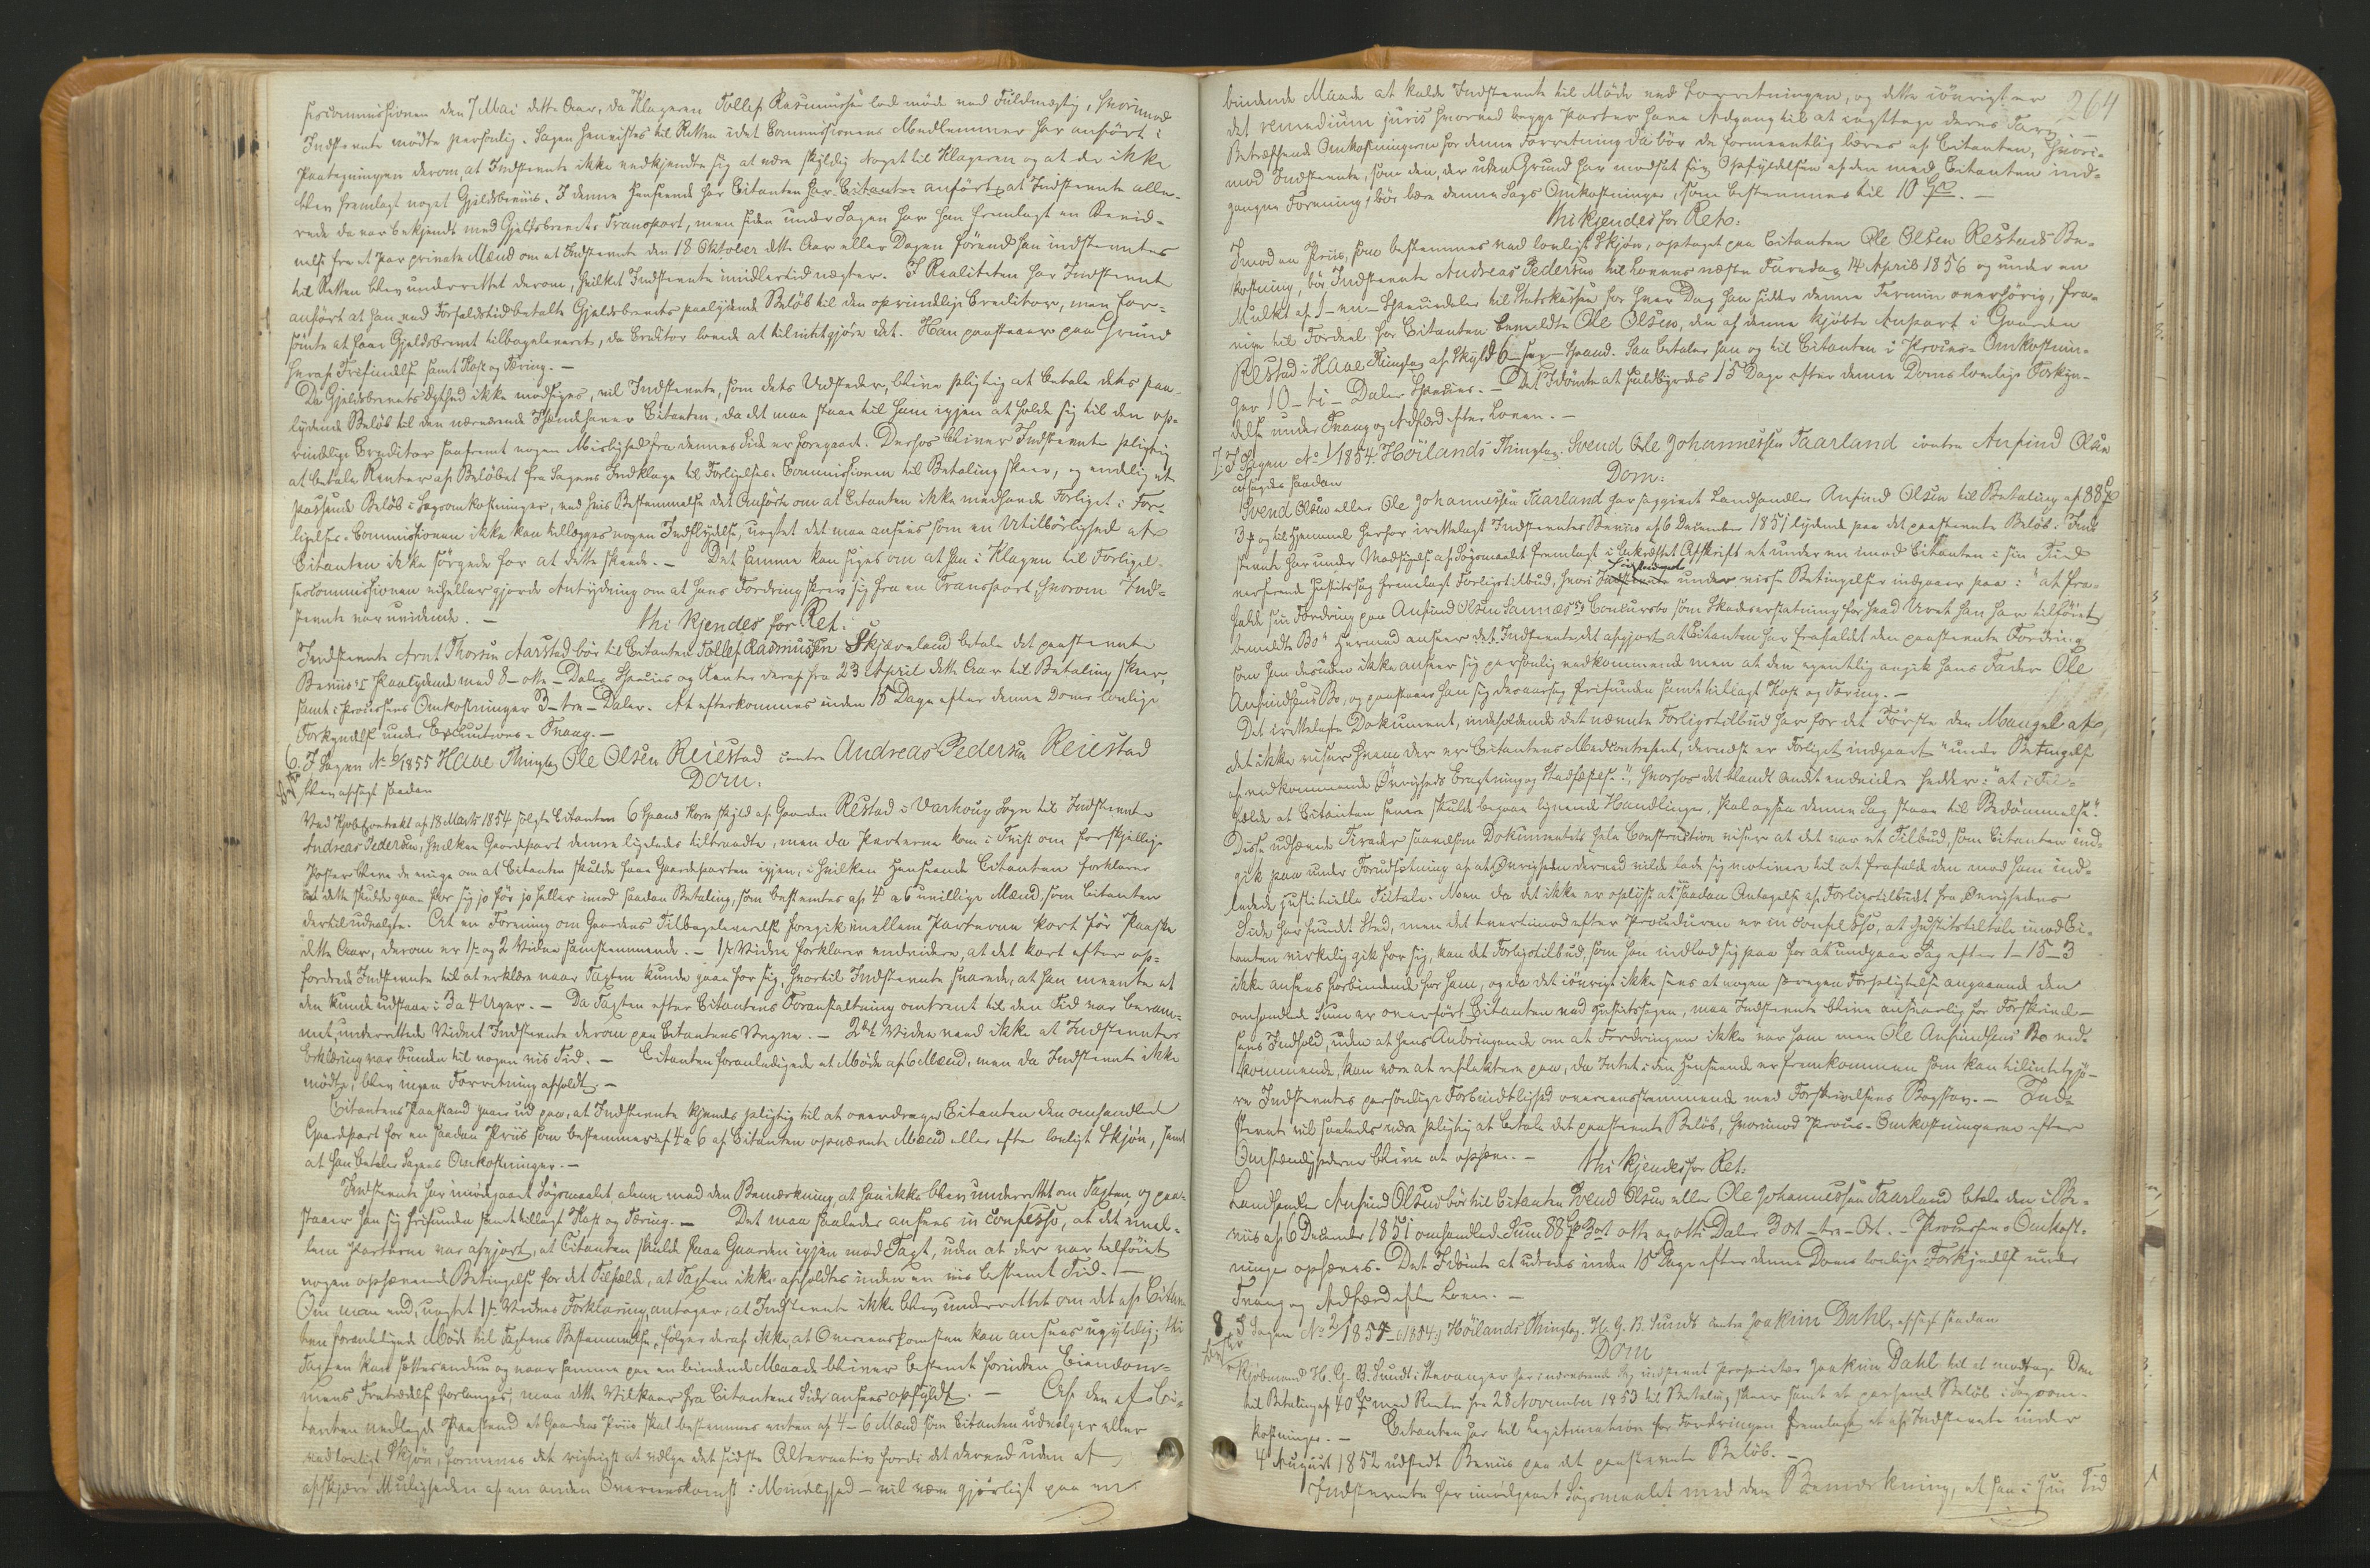 sescommissionen den 7 Mai dette Aar, da Klageren Tollef Rasmussen lod møde ved Fuldmægtig, hvorimod
Indstevnte mødte personlig. Sagen henvistes til Retten idet Commissionens Medlemmer har anført i
Paategningen derom, at Indstevnte ikke vedkjendte sig at være skyldig Noget til Klageren og at der ikke
blev fremlagt noget Gjeldsbeviis. I denne Henseende har Citanten anført at Indstevnte alle-
rede da var bekjendt med Gjeldsbrevets Transport, men siden under Sagen har han fremlagt en Bevid-
nelse fra et Par private Mænd om at Indstevnte den 18 Oktober dette Aar eller Dagen førend han indstevntes
til Retten blev underrettet derom, hvilket Indstevnte imidlertid nægter. I Realiteten har Indstevnt
anført at han ved Forfaldstid betalte Gjeldsbrevets paalydende Beløb til den oprindelige Creditor, men for-
sømte at faae Gjeldsbrevet tilbageleveret, da Creditor lovede at tilintetgjøre det. Han paastaaer paa Grund
heraf Frifindelse samt Kost og Tæring. –
Da Gjeldsbrevets Ægthed ikke modsiges, vil Indstevnte, som dets Udsteder, blive pligtig at betale dets paa-
lydende Beløb til den nærværende Ihændehaver Citanten, da det maa staae til ham igjen at holde sig til den op-
rindelige Creditor saafremt nogen Mislighed fra dennes Side er foregaaet. Derhos bliver Indstevnte pligtig
at betale Renter af Beløbet fra Sagens Indklage til Forligelses-Commissionen til Betaling skeer, og endelig et
passende Beløb i Sagsomkostninger, ved hvis Bestemmelse det Anførte om at Citanten ikke medhavde Forliget i For-
ligelses-Commissionen ikke kan tillægges nogen Indflydelse, uagtet det maa ansees som en Utilbørlighed af
Citanten ikke sørgede for at dette skeede. – Det samme kan siges om at han i Klagen til Forligel-
sescommissionen ei heller gjorde Antydning om at hans Fordring skrev sig fra en Transport, hvorom Ind-
stevnte var uvidende. –
thi kjendes for Ret:
Indstevnte Arnt Thorsen Aarstad bør til Citanten Tollef Rasmussen Skjæveland betale det paastevnte
Beviis's Paalydende med 8 – otte – Daler Species og Renter deraf fra 23 April dette Aar til Betaling skeer,
samt i Processens Omkostninger 3 – tre – Daler. At efterkommes inden 15 Dage efter denne Doms lovlige
Forkyndelse under Executions-Tvang. –
6. I Sagen No 6/1855 Haae Thinglag Ole Olsen Reiestad contra Andreas Pedersen Reiestad
blev afsagt saadan
Dom:
Ved Kjøbecontrakt af 18 Marts 1854 solgte Citanten 6 Spand Korn Skyld af Gaarden Restad i Varhoug Sogn til Indstevnte
Andreas Pedersen, hvilken Gaardpart denne ligeledes tiltraadte, men da Parterne kom i Tvist om forskjellige
Poster bleve de enige om at Citanten skulde faae Gaardsparten igjen, i hvilken Henseende Citanten forklarer
at dette skulde gaae for sig jo før jo heller imod saadan Betaling, som bestemtes af 4 a 6 uvillige Mænd, som Citanten
dertil udvalgte. At en Forening om Gaardens Tilbageleverelse foregik imellem Parterne kort før Paaske
dette Aar, derom er 1ste og 2 Vidne samstemmende. – 1ste Vidne forklarer endvidere, at det kort efter op-
fordrede Indstevnte til at erklære naar Taxten kunde gaae for sig, hvortil Indstevnte svarede, at han meente at
den kunde udstaae i 3 a 4 Uger. – Da Taxten efter Citantens Foranstaltning omtrent til den Tid var beram-
met, underrettede Vidnet Indstevnte derom paa Citantens Vegne. – 2det Vidne veed ikke at Indstevntes
Erklæring var bunden til nogen vis Tid. – Citanten foranledigede et Møde af 6 Mænd, men da Indstevnte ikke
mødte, blev ingen Forretning afholdt. –
Citantens Paastand gaaer ud paa, at Indstevnte kjendes pligtig til at overdrage Citanten den omhandlede
Gaardpart for en saadan Priis som bestemmes af 4 a 6 af Citanten opnævnte Mænd eller efter lovligt Skjøn, samt
at han betaler Sagens Omkostninger. –
Indstevnte har imødegaaet Søgsmaalet, alene med den Bemærkning, at han ikke blev underrettet om Taxten, og paa-
staaer han sig frifunden samt tillagt Kost og Tæring. – Det maa saaledes ansees in confesso, at det imel-
lem Parterne var afgjort, at Citanten skulde faae Gaarden igjen mod Taxt, uden at der var tilføiet
nogen ophævende Betingelse for det Tilfælde, at Taxten ikke afholdtes inden en vis bestemt Tid. –
Om man end, uagtet 1ste Vidnes Forklaring, antager, at Indstevnte ikke blev underrettet om det af Citan-
ten foranledigede Møde til Taxtens Bestemmelse, følger deraf ikke, at Overeenskomsten kan ansees ugyldig; thi
Taxten kan søttes endnu og naar samme paa en bindende Maade bliver bestemt forinden Eiendom-
mens Fratrædelse forlanges, maa dette Vilkaar fra Citantens Side ansees opfyldt. – Af den af Ci-
tanten nedlagde Paastand at Gaardens Priis skal bestemmes enten af 4–6 Mænd som Citanten udvælger eller
ved lovligt Skjøn, formenes det rigtigst at vælge det sidste Alternativ fordi det derved uden at
afskjære Muligheden af en anden Overeenskomst i Mindelighed – vil være gjørligt paa en
264
bindende Maade at kalde Indstevnte til Møde ved Forretningen, og dette iøvrigt er
det remedium juris hvorved begge Parter have Adgang til at iagttage deres Tarv.
Betræffende Omkostningerne for denne Forretning da bør de formeentlig bæres af Citanten, hvori-
mod Indstevnte, som den, der uden Grund har modsat sig Opfyldelsen af den med Citanten ind-
gangne Forening, bør bære denne Sags Omkostninger, som bestemmes til 10 Spd. –
thi kjendes for Ret:
Imod en Priis, som bestemmes ved lovligt Skjøn, optaget paa Citanten Ole Olsen Restads Be-
kostning, bør Indstevnte Andreas Pedersen til Lovens næste Faredag 14 April 1856 og under en
Mulkt af 1 – en – Speciedaler til Statskassen for hver Dag han sidder denne Termin overhørig, fra-
vige til Fordeel for Citanten bemeldte Ole Olsen, den af denne kjøbte Anpart i Gaarden
Restad i Haae Thinglag af Skyld 6 – sex – Spand. Saa betaler han og til Citanten i Proces-Omkostnin-
ger 10 – ti – Daler Species. – Det Idømte at fuldbyrdes 15 Dage efter denne Doms lovlige Forkyn-
delse under Tvang og Adfærd efter Loven. –
7. I Sagen No 1/1854 Høilands Thinglag. Svend Ole Johannessen Taarland contra Anfind Olsen
afsagdes saadan
Dom:
Svend Olsen eller Ole Johannessen Taarland har sagsøgt Landhandler Anfind Olsen til Betaling af 88 Spd
3 ort og til Hjemmel herfor irettelagt Indstevntes Beviis af 6 December 1851 lydende paa det paastevnte Beløb. Ind-
stevnte har under Modsigelse af Søgsmaalet fremlagt i bekræftet Afskrift et under en imod Citanten i sin Tid
verserende Justitssag fremlagt Forligstilbud, hvori Sigtede under visse Betingelser indgaaer paa: "at fra-
falde sin Fordring paa Anfind Olsen Sannæs's Concursbo som Skadeserstatning for hvad Uret han har tilføiet
bemeldte Bo". Hermed anseer Indstevnte det afgjort at Citanten har frafaldet den paastevnte Fordring
som han desuden ikke anseer sig personlig vedkommende men at den egentlig angik hans Fader Ole
Anfindsens Bo, og paastaaer han sig desaarsag frifunden samt tillagt Kost og Tæring. –
Det irettelagte Dokument, indeholdende det nævnte Forligstilbud har for det Første den Mangel at
det ikke viser hvem der er Citantens Medcontrahent, dernæst er Forliget indgaaet "under Betingelse
af vedkommende Øvrigheds Eragtning og Stadfæstelse", hvorhos det blandt Andet endvidere hedder: "at i Til-
fælde at Citanten senere skulde begaae lignende Handlinger, skal ogsaa denne Sag staae til Bedømmelse".
Disse udhævede Tirader saavelsom Dokumentets hele Construktion viser at det var et Tilbud, som Citanten ind-
gik paa under Forudsætning af at Øvrigheden derved vilde lade sig motivere til at frafalde den mod ham ind-
ledede justitielle Tiltale. Men da det ikke er oplyst at saadan Antagelse af Forligstilbudet fra Øvrighedens
Side har fundet Sted, men det tvertimod efter Proceduren er in confesso, at Justitstiltale imod Ci-
tanten virkelig gik for sig, kan det Forligstilbud, som han indlod sig paa for at undgaae Sag efter 1–15–3
ikke ansees forbindende for ham, og da det iøvrigt ikke sees at nogen særegen Forpligtelse angaaende den
omhandlede Sum er overført Citanten ved Justitssagen, maa Indstevnte blive ansvarlig for Forskrivel-
sens Indhold, uden at hans Anbringende om at Fordringen ikke var ham men Ole Anfindsens Bo ved-
kommende, kan være at reflektere paa, da Intet i den Henseende er fremkommen som kan tilintetgjø-
re Indstevntes personlige Forbindtlighed overeensstemmende med Forskrivelsens Bogstav. – Ind-
stevnte vil saaledes være pligtig at betale det paastevnte Beløb, hvorimod Proces-Omkostningerne efter
Omstændighederne blive at ophæve. –
thi kjendes for Ret:
Landhandler Anfind Olsen bør til Citanten Svend Olsen eller Ole Johannessen Taarland betale den i Be-
viis af 6 December 1851 omhandlede Sum 88 Spd 3 ort otte og otti Daler 3 Ort – tre – Ort. – Processens Omkost-
ninger ophæves. Det Idømte at udredes inden 15 Dage efter denne Doms lovlige Forkyndelse under
Tvang og Adfærd efter Loven. –
8. I Sagen No 2/1857 Høilands Thinglag. H. G. B. Sundt contra Joakim Dahl, afsagt saadan
Dom
Kjøbmand H. G. B. Sundt i Stavanger har i nærværende Sag indstevnt Proprietær Joakim Dahl til at modtage Dom
til Betaling af 40 Spd med Renter fra 28 November 1853 til Betaling skeer samt et passende Beløb i Sagsom-
kostninger. – Citanten har til Legitimation for Fordringen fremlagt et af Indstevnte under
4 August 1852 udstedt Beviis paa det paastevnte Beløb. –
Indstevnte har imødegaaet Søgsmaalet med den Bemærkning, at han i sin Tid